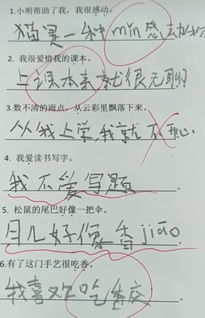 1.小明帮助了我，我很感动。
猫是一种 min 感动物
2. 我很爱惜我的课本。
上课本来就很无聊
3.数不清的雨点，从云彩里飘落下来。
从我上学，我就不开心
4. 我爱读书写字。
我不爱写题
5. 松鼠的尾巴好像一把伞。
月儿好像香jiāo
6.有了这门手艺很吃香。
我喜欢吃香皮